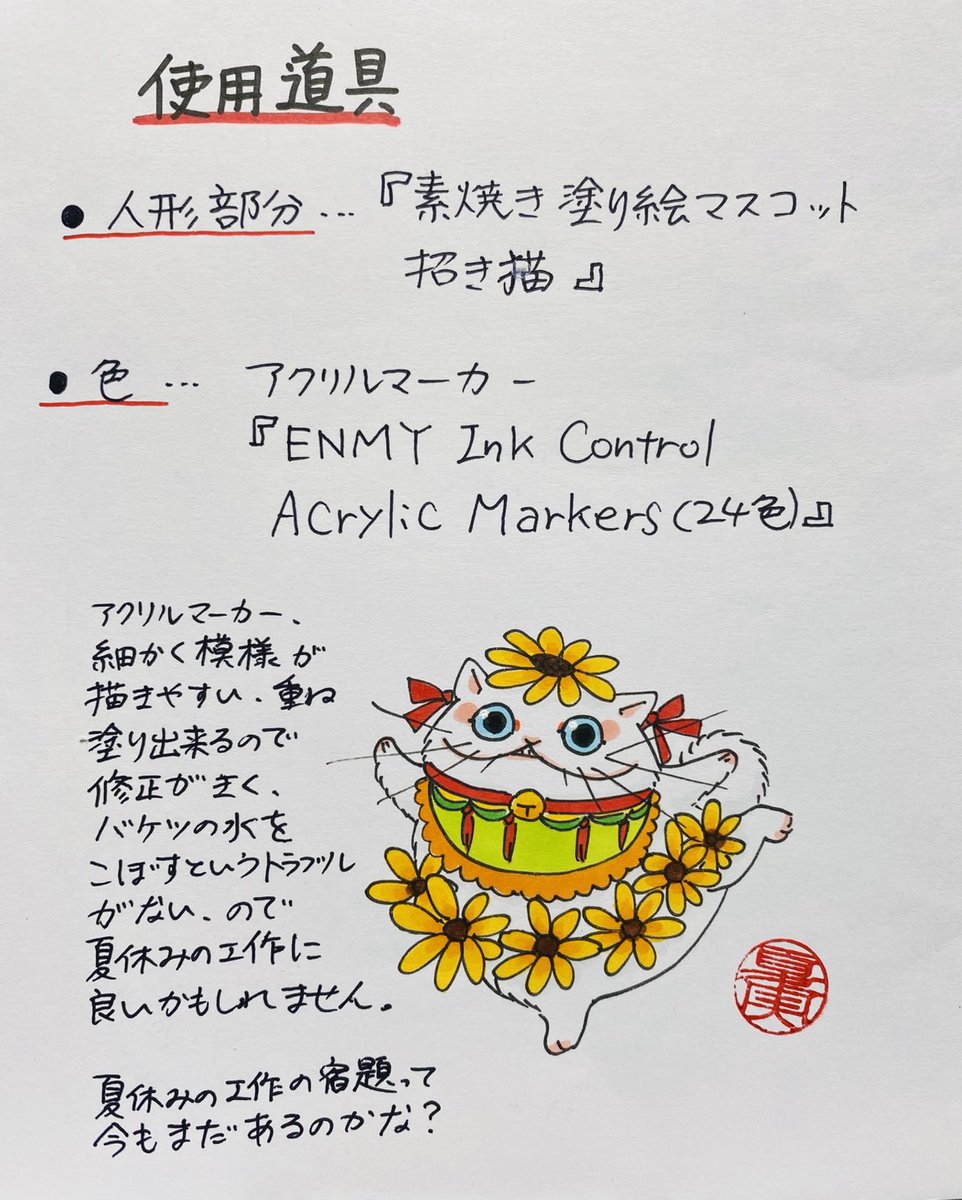 使用道具
● 人形部分…『素焼き塗り絵マスコット
招き猫』
● 色… アクリルマーカー
『ENMY Ink Control
Acrylic Markers(24色)』
アクリルマーカー、
細かく模様が
描きやすい、重ね
塗り出来るので
修正がきく、
バケツの水を
こぼすというトラブル
がない、ので
夏休みの工作に
良いかもしれません。
夏休みの工作の宿題って
今もまだあるのかな?